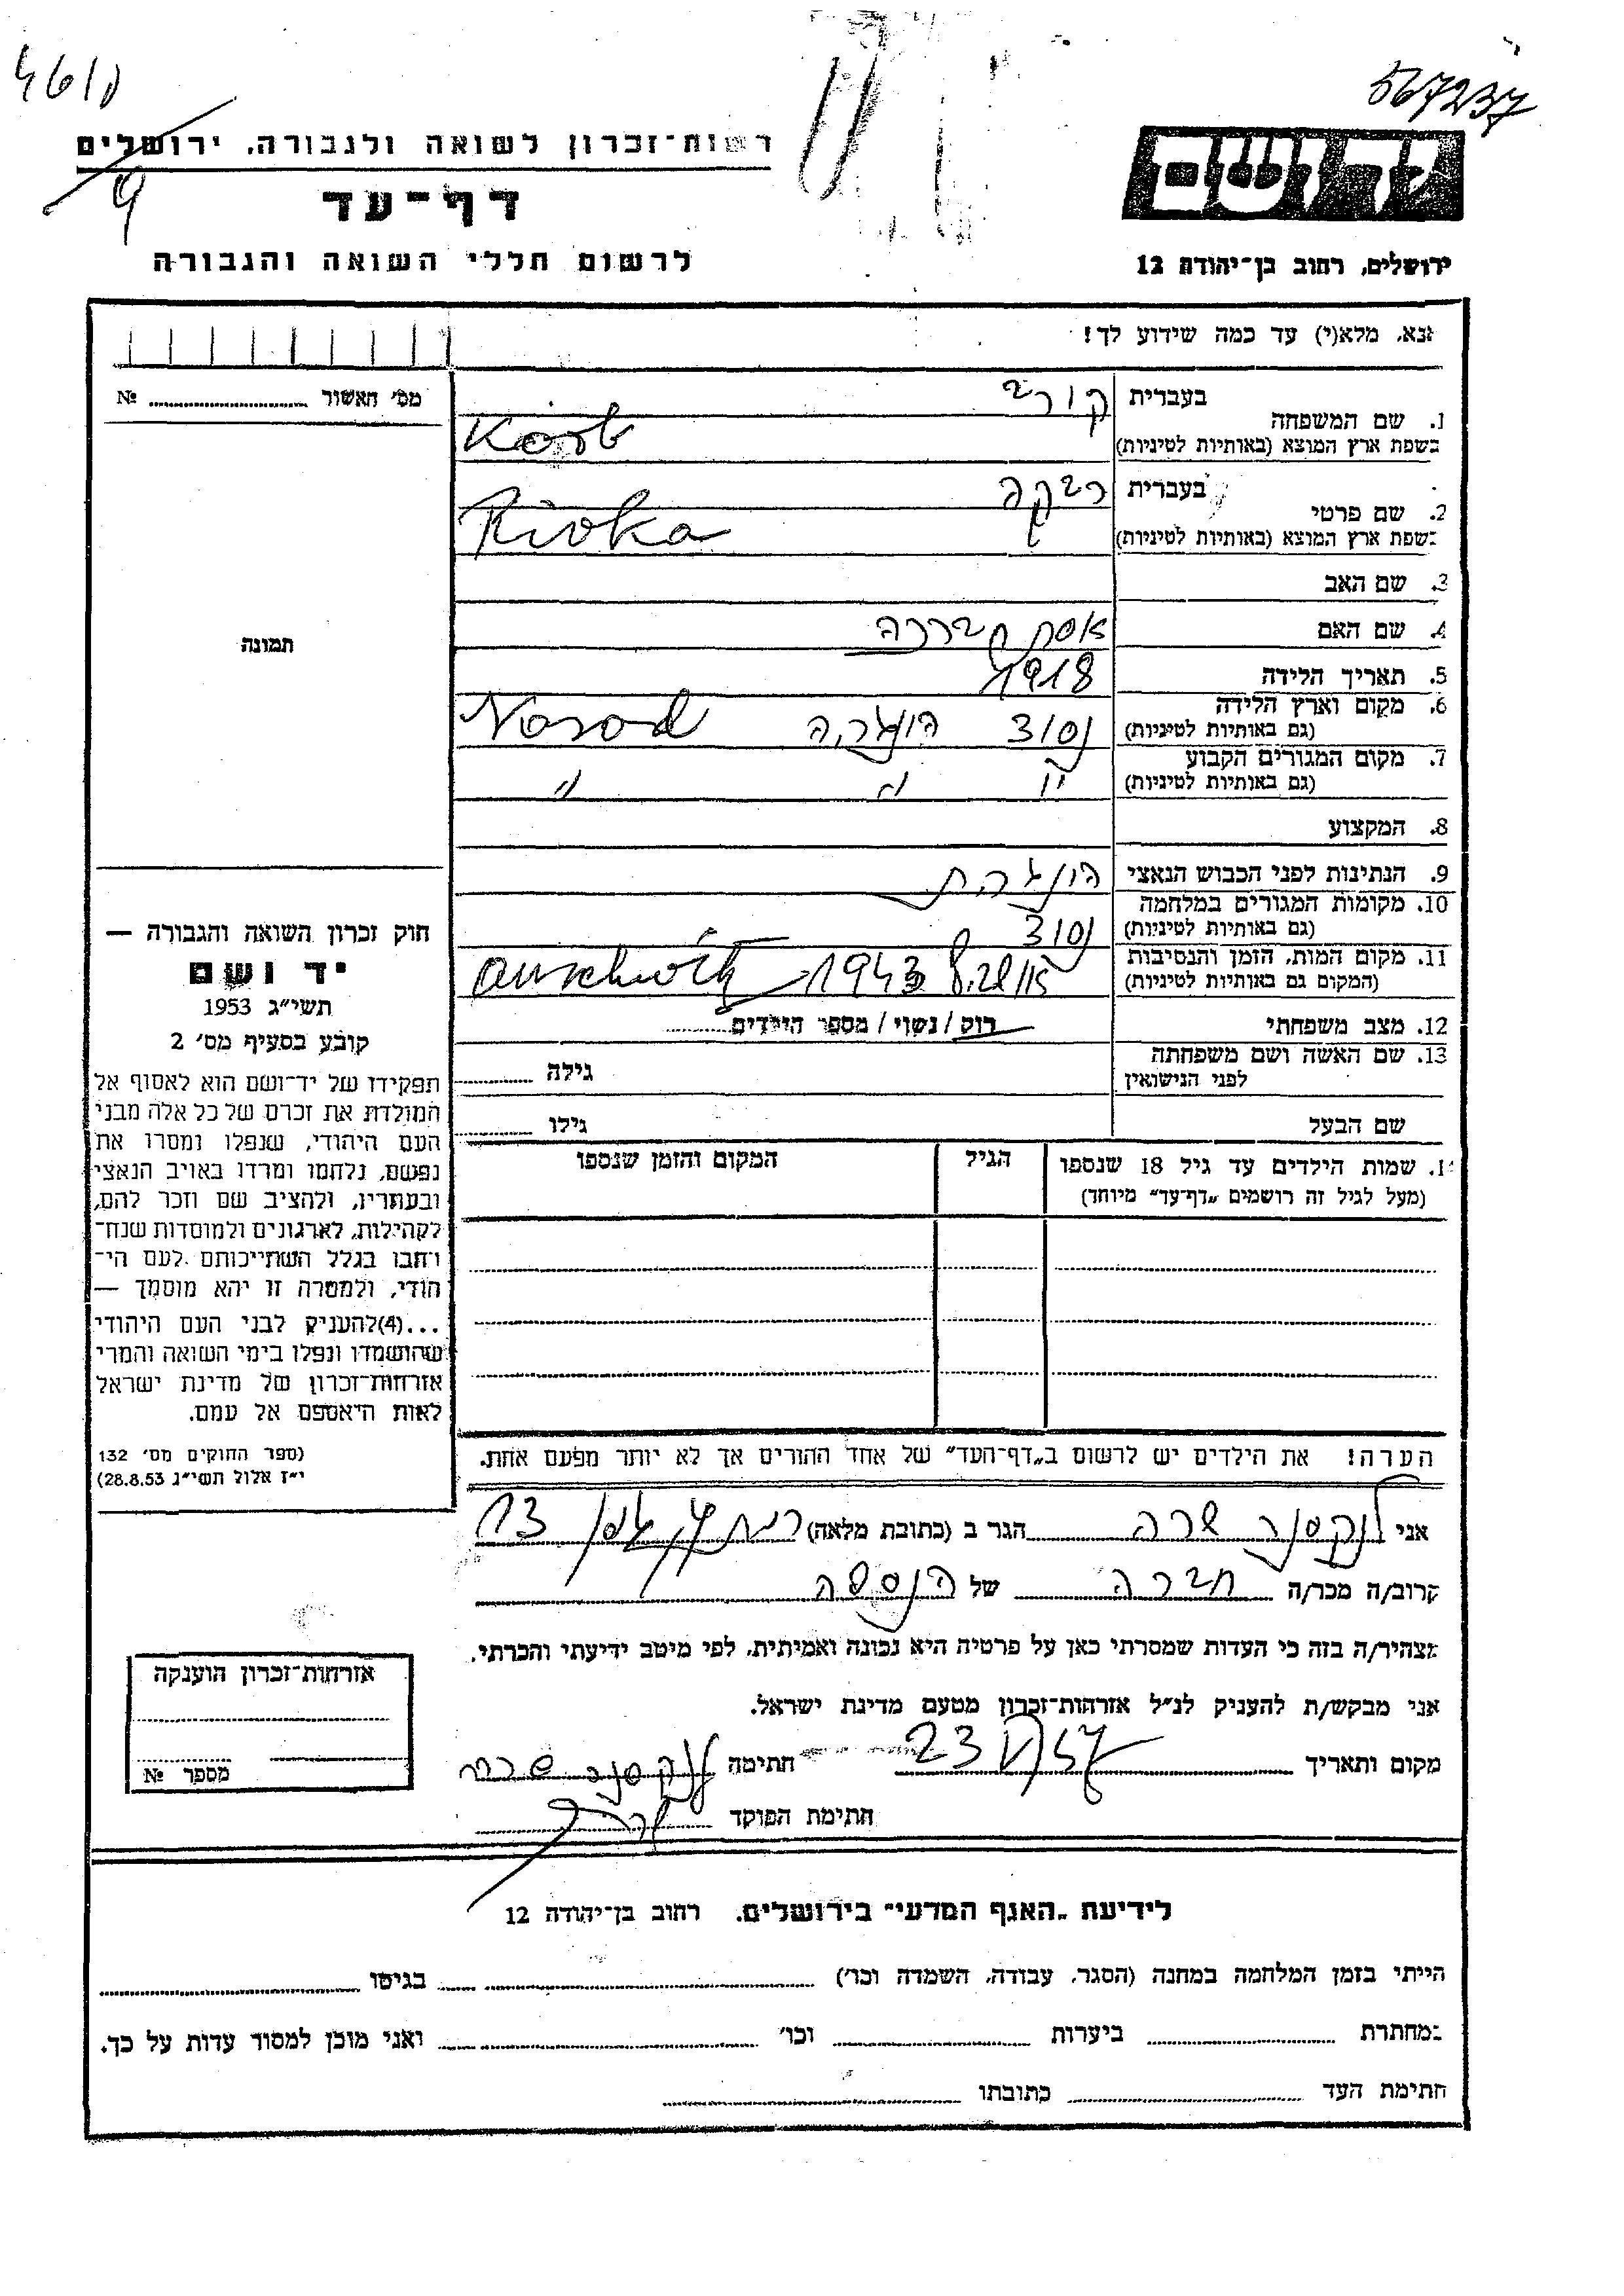 4610
567237
רשות-זכרון לשואה ולגבורה, ירושלים
9
דף-עד
לרשום חללי השואה והגבורה
יד ושם
ירושלים, רחוב בן-יהודה 12
נא, מלא(י) עד כמה שידוע לך!
מס' האשור № 
1. שם המשפחה
בעברית קורב
בשפת ארץ המוצא (באותיות לטיניות) Korb
2. שם פרטי
בעברית רבקה
בשפת ארץ המוצא (באותיות לטיניות) Rivka
3. שם האב
4. שם האם
5. תאריך הלידה 1918
6. מקום וארץ הלידה
(גם באותיות לטיניות)
7. מקום המגורים הקבוע
(גם באותיות לטיניות) " " "
8. המקצוע
9. הנתינות לפני הכבוש הנאצי
10. מקומות המגורים במלחמה
(גם באותיות לטיניות)
11. מקום המות, הזמן והנסיבות
(המקום גם באותיות לטיניות) 1943
12. מצב משפחתי רוק / נשוי / מספר הילדים
13. שם האשה ושם משפחתה
לפני הנישואין גילה
שם הבעל גילו
14. שמות הילדים עד גיל 18 שנספו הגיל המקום והזמן שנספו
(מעל לגיל זה רושמים „דף-עד" מיוחד)
הערה! את הילדים יש לרשום ב„דף-העד" של אחד ההורים אך לא יותר מפעם אחת.
תמונה
חוק זכרון השואה והגבורה —
יד ושם
תשי"ג 1953
קובע בסעיף מס' 2
תפקידו של יד-ושם הוא לאסוף אל
המולדת את זכרם של כל אלה מבני
העם היהודי, שנפלו ומסרו את
נפשם, נלחמו ומרדו באויב הנאצי
ובעוזריו, ולהציב שם וזכר להם,
לקהילות, לארגונים ולמוסדות שנח-
רבו בגלל השתייכותם לעם הי-
הודי, ולמטרה זו יהא מוסמך —
...(4)להעניק לבני העם היהודי
שהושמדו ונפלו בימי השואה והמרי
אזרחות-זכרון של מדינת ישראל
לאות היאספם אל עמם.
(ספר החוקים מס' 132
י"ז אלול תשי"ג 28.8.53)
אני שרה הגר ב (כתובת מלאה) 13
קרוב/ה מכר/ה חברה של הנספה
מצהיר/ה בזה כי העדות שמסרתי כאן על פרטיה היא נכונה ואמיתית, לפי מיטב ידיעתי והכרתי.
אני מבקש/ת להעניק לנ"ל אזרחות-זכרון מטעם מדינת ישראל.
מקום ותאריך חתימה
חתימת הפוקד
אזרחות-זכרון הוענקה
מספר №
לידיעת „האגף המדעי" בירושלים, רחוב בן-יהודה 12
הייתי בזמן המלחמה במחנה (הסגר, עבודה, השמדה וכו') בגיטו
במחתרת ביערות וכו' ואני מוכן למסור עדות על כך.
חתימת העד כתובתו